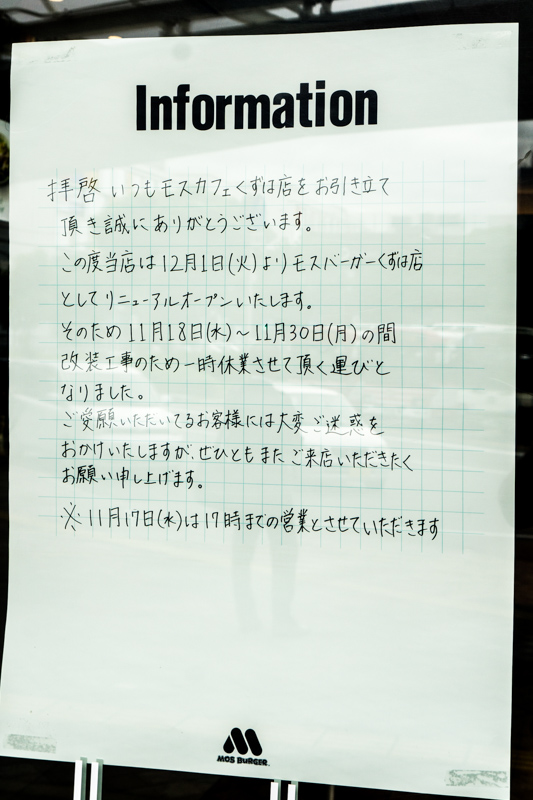 Information
拝啓 いつもモスカフェくずは店をお引き立て
頂き誠にありがとうございます。
この度当店は12月1日(火)よりモスバーガーくずは店
としてリニューアルオープンいたします。
そのため11月18日(水)～11月30日(月)の間
改装工事のため一時休業させて頂く運びと
なりました。
ご愛願いただいてるお客様には大変ご迷惑を
おかけいたしますが、ぜひともまたご来店いただきたく
お願い申し上げます。
※11月17日(水)は17時までの営業とさせていただきます
MOS BURGER